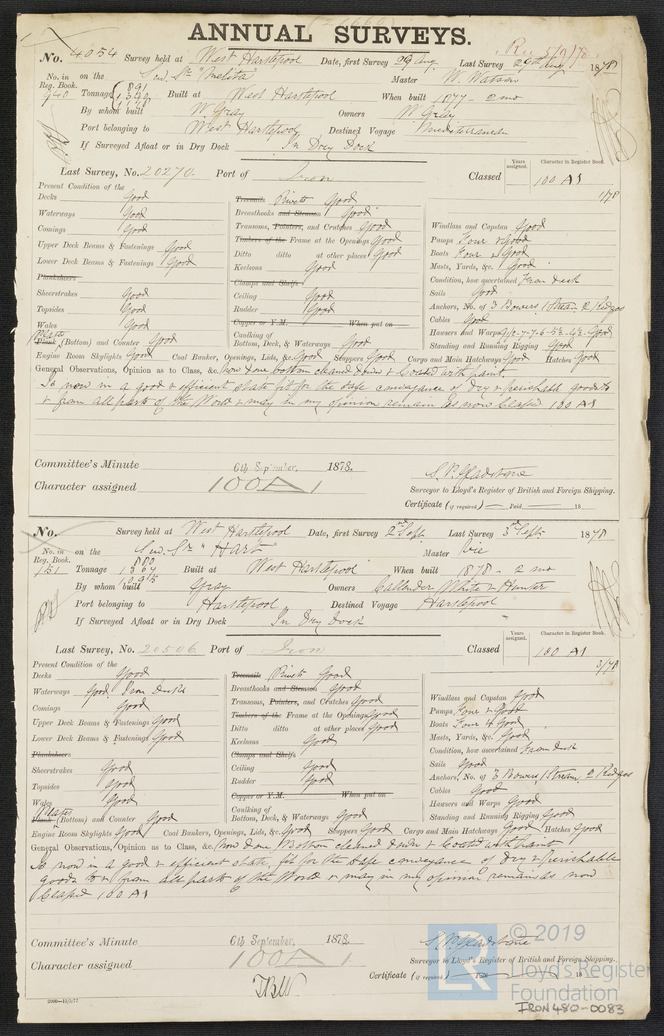 ANNUAL SURVEYS.
No. 4054 Survey held at West Hartlepool Date, first Survey 29 Aug. Last Survey 29th Aug 1878
No. in Reg. Book. on the Sc. Str "Melita" Master W. Watson
940 Tonnage 891 Built at West Hartlepool When built 1877 - 2 mo
By whom built W Gray Owners W Gray
Port belonging to West Hartlepool Destined Voyage Mediterranean
If Surveyed Afloat or in Dry Dock In Dry Dock
Years assigned. Character in Register Book.
Last Survey, No. 20270. Port of Iron Classed 100 A1
1/78
Present Condition of the
Decks Good Treenails Rivets Good
Waterways Good Breasthooks and Stemson Good
Comings Good Transoms, Pointers, and Crutches Good Windlass and Capstan Good
Upper Deck Beams & Fastenings Good Timbers of the Frame at the Openings Good Pumps Four & Good
Lower Deck Beams & Fastenings Good Ditto ditto at other places Good Boats Four & Good
Plankshears Keelsons Good Masts, Yards, &c. Good
Clamps and Shelfs Condition, how ascertained From deck
Sheerstrakes Good Ceiling Good Sails Good
Topsides Good Rudder Good Anchors, No. of 3 Bowers 1 Stream 2 Kedges
Wales Good Copper or Y.M. When put on Cables Good
Plates Plank (Bottom) and Counter Good Caulking of Bottom, Deck, & Waterways Good Hawsers and Warps Good
Standing and Running Rigging Good
Engine Room Skylights Good Coal Bunker, Openings, Lids, &c. Good Scuppers Good Cargo and Main Hatchways Good Hatches Good
General Observations, Opinion as to Class, &c. Now done bottom cleaned & coated with paint
Is now in a good & efficient state fit for the safe conveyance of Dry & perishable goods to
& from all parts of the World & may in my opinion remain as now Classed 100 A1
Committee's Minute 6th September, 1878.
Character assigned 100 A 1
S. P. Gladstone
Surveyor to Lloyd's Register of British and Foreign Shipping.
Certificate (if required) — Paid — 18
No. Survey held at West Hartlepool Date, first Survey 2nd Sept. Last Survey 3rd Sept 1878
No. in Reg. Book. on the Sc. Str "Hart" Master
151 Tonnage 880 Built at West Hartlepool When built 1878 - 2 mo
By whom built Gray Owners Callender White & Hunter
Port belonging to Hartlepool Destined Voyage Hartlepool
If Surveyed Afloat or in Dry Dock In Dry Dock
Years assigned. Character in Register Book.
Last Survey, No. 20506 Port of Iron Classed 100 A1
3/78
Present Condition of the
Decks Good Treenails Rivets Good
Waterways Good Iron Breasthooks and Stemson Good
Comings Good Transoms, Pointers, and Crutches Good Windlass and Capstan Good
Upper Deck Beams & Fastenings Good Timbers of the Frame at the Openings Good Pumps Four & Good
Lower Deck Beams & Fastenings Good Ditto ditto at other places Good Boats Four & Good
Plankshears Keelsons Good Masts, Yards, &c. Good
Clamps and Shelfs Condition, how ascertained From deck
Sheerstrakes Good Ceiling Good Sails Good
Topsides Good Rudder Good Anchors, No. of 3 Bowers 1 Stream 2 Kedges
Wales Good Copper or Y.M. When put on Cables Good
Plates Plank (Bottom) and Counter Good Caulking of Bottom, Deck, & Waterways Good Hawsers and Warps Good
Standing and Running Rigging Good
Engine Room Skylights Good Coal Bunkers, Openings, Lids, &c. Good Scuppers Good Cargo and Main Hatchways Good Hatches Good
General Observations, Opinion as to Class, &c. Now done Bottom cleaned & coated with paint
Is now in a good & efficient state, fit for the safe conveyance of Dry & perishable
goods to & from all parts of the World & may in my opinion remain as now
Classed 100 A1
Committee's Minute 6th September, 1878.
Character assigned 100 A 1
S. P. Gladstone
Surveyor to Lloyd's Register of British and Foreign Shipping.
Certificate (if required) — Paid — 18
© 2019
LR
Lloyd's Register
Foundation
IRON480-0083